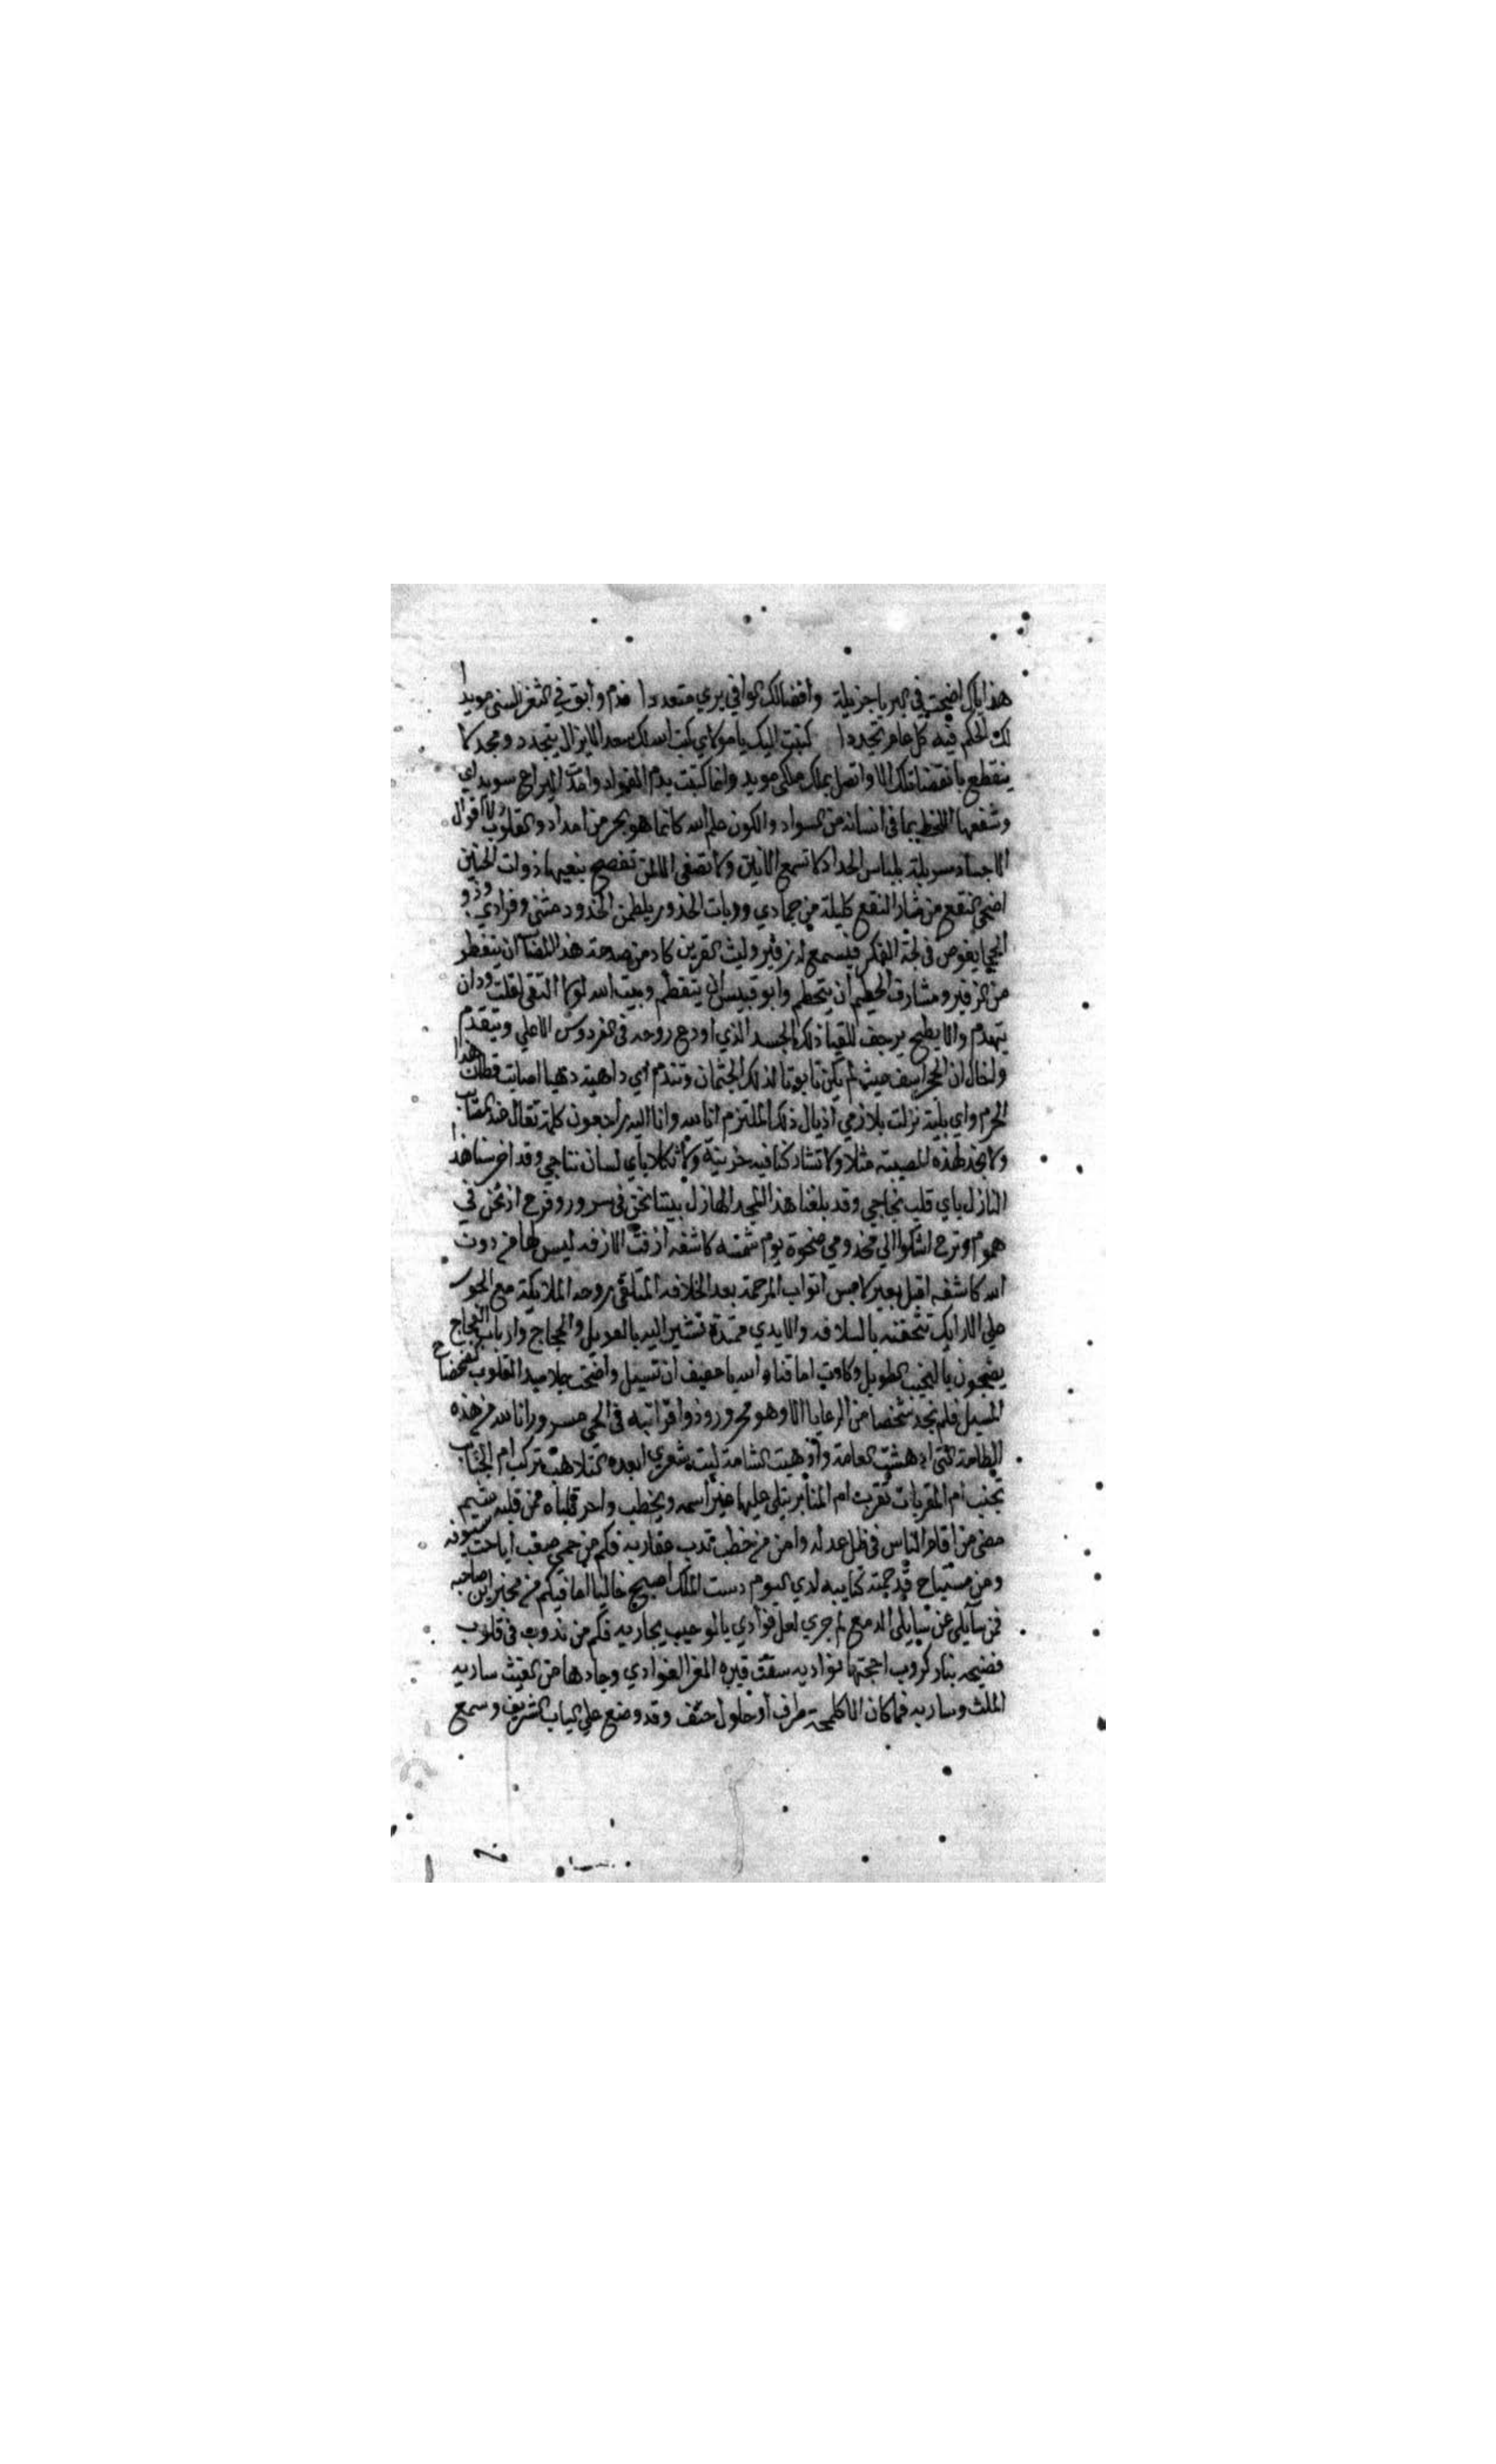 هذاياك اضحت في البريا جزيلة وأفضالك الوافي يري متعددا فدم وأبق في الثغر السني مويدا
لك الحكم فيه كل عام تجددا كتبت اليك يا مولاي كبت اسد لك سعدا لايزال يتجدد ومجد لا
ينقطع بانقضا ملك الا واتصل بملك ملكي مويد وانما كتبت بدم الفواد وامدت اليراع سويداي
وشفعها اللحظ بما في انسانه من السواد والكون علم الله كانما هو بحر من امداد والقلوب ولا اقول
الاجساد سربلة بلباس الحداد لا تسمع الانين ولا تصغي الا لمن تفصح بنعيها ذوات الحنين
اضحي النقع من مثار النقع كليلة من جمادي وربات الخدور يلطمن الخدود مثني وفرادي وذو
الحجي يغوص في لجة الفكر فيسمع له زفير وليث العرين كاد من صدمة هذا القضا ان ينفطر
من الزفير ومشارف الحطيم أن يتحطم وابو قبيس ان يتقطم وبيت الله لولا التقي لقلت ودان
يتهدم والابطح يرجف للقيا ذلك الجسد الذي اودع روحه في الفردوس الاعلي ويتقدم
ولخال ان الحجر اسف حيث لم يكن تابوتا لذلك الجثمان وتندم اي داهية دهيا اصابت قطان هذا
الحرم واي بلية نزلت بلازمي اذيال ذلك الملتزم انا لله وانا اليه راجعون كلمة تقال عند المصايب
ولا نجد لهذه المصيبة مثلا ولا تشاركنا فيه حزينة ولا ثكلا باي لسان نناجي وقد اخرسنا هذا
النازل باي قلب نحاجي وقد بلغنا هذا الجد الهازل بينا نحن في سرور وفرح اذ نحن في
هموم وترح اشكوا الي مخدومي ضحوة يوم شمسه كاشفه أزفت الازفه ليس لها من دون
الله كاشفه اقبل بعير لابس اثواب المرحمة بعد الخلافه المتلقي روحه الملايكة مع الحور
علي الارايك تتحفنه بالسلافه والايدي ممتدة تشير اليه بالعويل والعجاج وارباب الفجاج
يضجون بالنحيب الطويل وكادت اماقنا والله يا عفيف ان تسيل وأضحت جلاميد القلوب كضحضاح
المسيل فلم نجد شخصا من الرعايا الا وهو محرور وذوا قرابته في الحي مسرور انا لله من هذه
الطامة التي ادهشت العامة وأوهيت الشامة ليت شعري ابعده السلاهب تركب ام الجنايب
تجنب أم المقربات تقرب ام المنابر يتلي عليها غير أسمه ويخطب واحر قلباه ممن قلبه شيم
مضي من اقام الناس في ظل عدله وامن من خطب تدب عقاربه فكم من حمي صعب أباحت سيوفه
ومن مستباح قد حمته كتايبه لدي اليوم دست الملك اصبح خاليا اما فيكم من مخبر اين صاحبه
فمن سايلي عن سايلي الدمع لم جري لعل فؤادي بالوجيب يجاربه فكم من ندوب في قلوب
نضيجه بنار كروب اججتها نوادبه سقت قبره الغر الغوادي وجادها من الغيث ساريه
الملث وساربه فما كان الا كلمحة طرف أو حلول حتف وقد وضع علي الباب الشريف وسمع